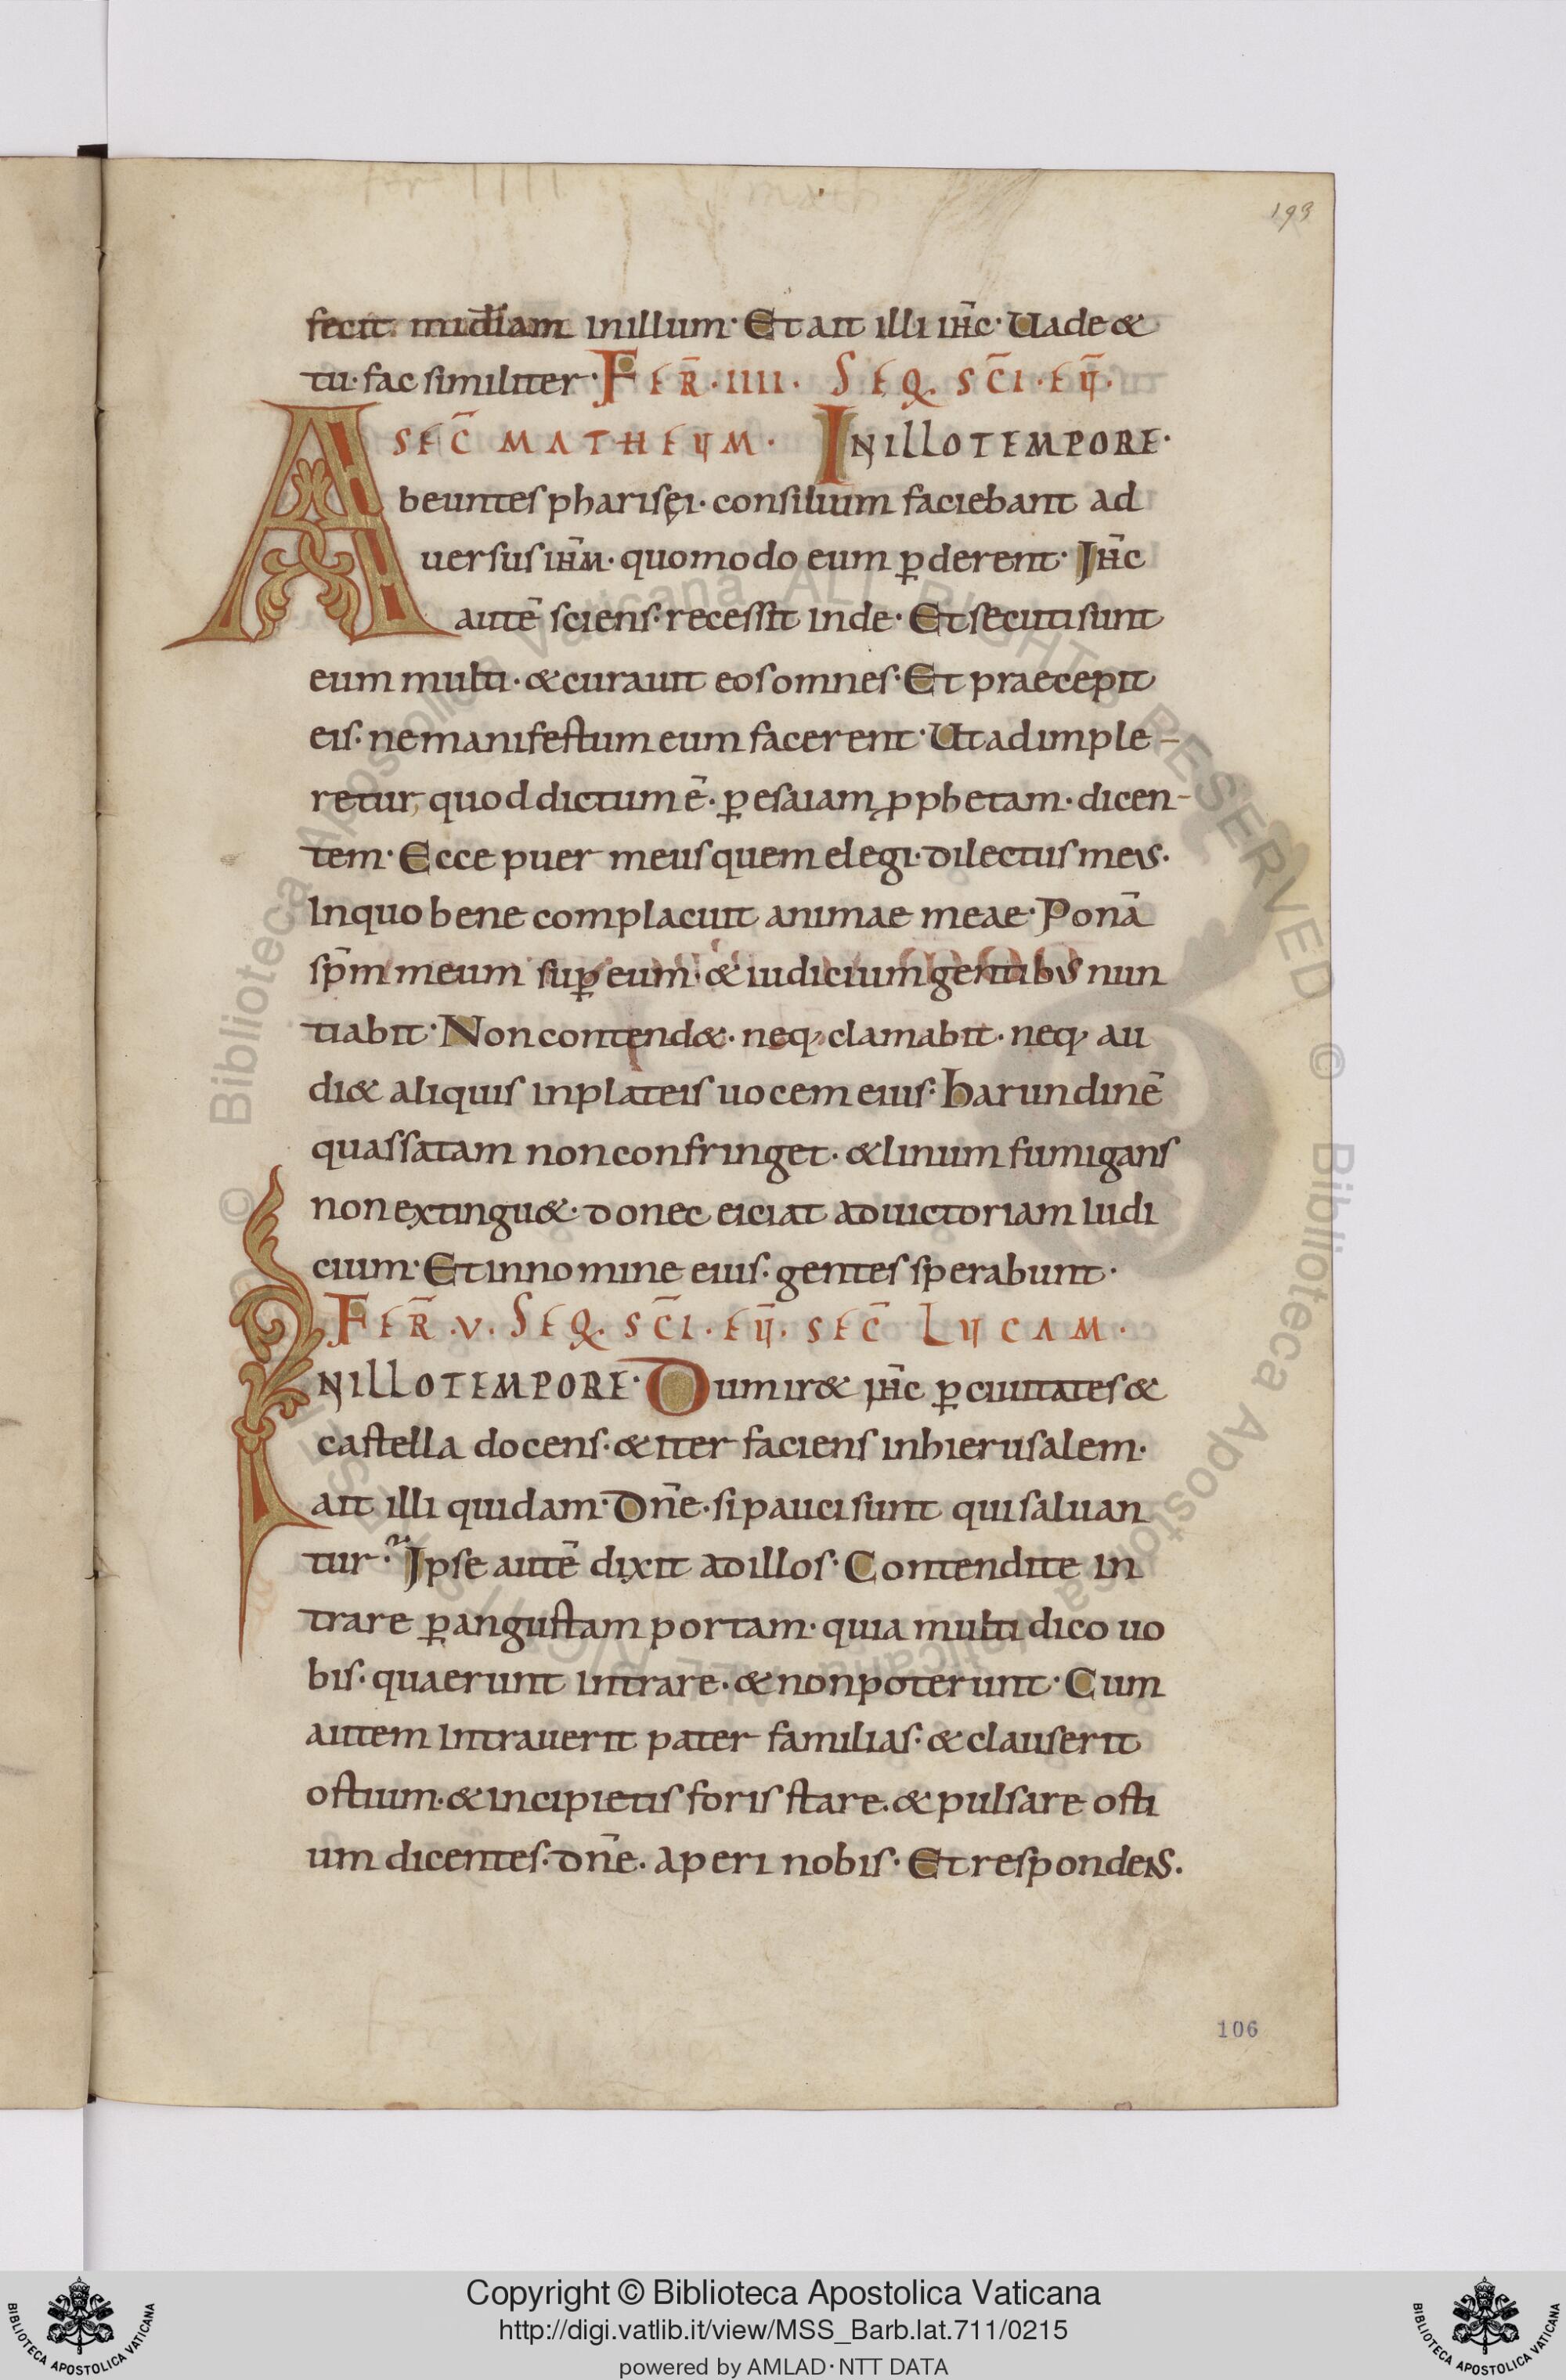 193
fecit. mid̄iam inillum· Et ait illi ih̄c· Uade &
tu· fac similiter· FER̄·IIII· SEQ· SC̄I·EŪ·
SEC̄ MATHEUM· INILLOTEMPORE·
Abeuntes pharisęi· consilium faciebant ad
uersus ih̄m· quomodo eum ꝑderent· Ih̄c
autē sciens· recessit inde· Et secuti sunt
eum multi· & curauit eos omnes· Et praecepit
eis· ne manifestum eum facerent· Ut adimple-
retur, quod dictum ē· ꝑ esaiam ꝓphetam· dicen-
tem· Ecce puer meus quem elegi· dilectus meus·
Inquo bene complacuit animae meae· Ponā
sp̄m meum suꝑ eum· & iudicium gentibus nun
tiabit· Non contend&· neq; clamabit· neq; au
di& aliquis inplateis uocem eius· harundinē
quassatam non confringet· & linum fumigans
non extingu&· donec eiciat ad uictoriam Iudi
cium· Et in nomine eius· gentes sperabunt·
FER̄·V· SEQ· SC̄I·EŪ· SEC̄ LUCAM·
INILLOTEMPORE· Dum ir& ih̄c ꝑ ciuitates &
castella docens· & iter faciens inhierusalem·
ait illi quidam· Dn̄e· si pauci sunt qui saluan
tur· Ipse autē dixit ad illos· Contendite in
trare ꝑ angustam portam· quia multi dico uo
bis· quaerunt intrare· & non poterunt· Cum
autem intrauerit pater familias· & clauserit
ostium· & incipietis foris stare· & pulsare osti
um dicentes· dn̄e· aperi nobis· Et respondens·
106
© Biblioteca Apostolica Vaticana ALL RIGHTS RESERVED © Biblioteca Apostolica Vaticana ALL RIGHTS RESERVED
Copyright © Biblioteca Apostolica Vaticana
http://digi.vatlib.it/view/MSS_Barb.lat.711/0215
powered by AMLAD·NTT DATA
BIBLIOTECA APOSTOLICA VATICANA
BIBLIOTECA APOSTOLICA VATICANA